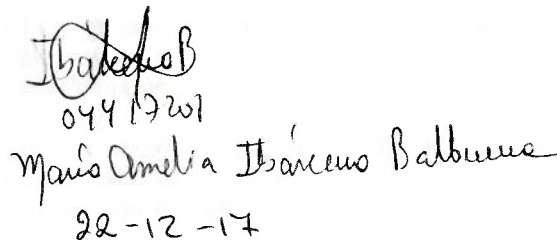 IbárcenoB
04417201
Maria Amelia Ibárceno Balbuena
22-12-17